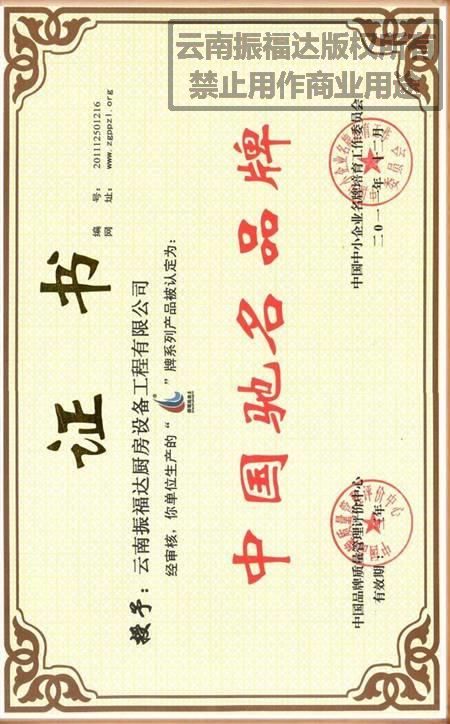 云南振福达版权所有
禁止用作商业用途
证书
编号：201112501216
网址：www.zgppzl.org
授予：云南振福达厨房设备工程有限公司
经审核，你单位生产的“ ”牌系列产品被认定为：
中国驰名品牌
中国品牌质量管理评价中心
有效期：三年
中国中小企业名牌培育工作委员会
二〇一一年十二月